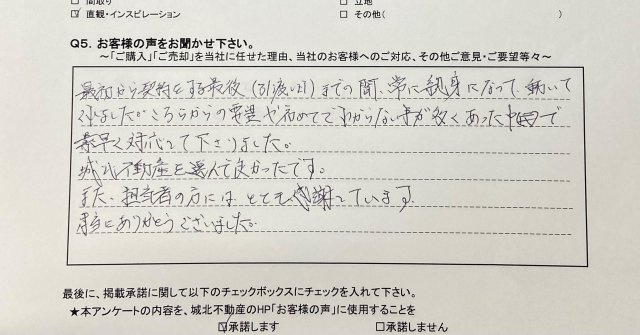 □ 間取り □ 立地
☑ 直観・インスピレーション □ その他( )
Q5. お客様の声をお聞かせ下さい。
～「ご購入」「ご売却」を当社に任せた理由、当社のお客様へのご対応、その他ご意見・ご要望等々～
最初から契約をする最後(引渡し)までの間、常に親身になって、動いて
くれました。こちらからの要望や初めてでわからない事が多くあった中で
素早く対応して下さりました。
城北不動産を選んで良かったです。
また、担当者の方には、とても感謝しています。
本当にありがとうございました。
最後に、掲載承諾に関して以下のチェックボックスにチェックを入れて下さい。
★本アンケートの内容を、城北不動産のHP「お客様の声」に使用することを
☑承諾します □承諾しません